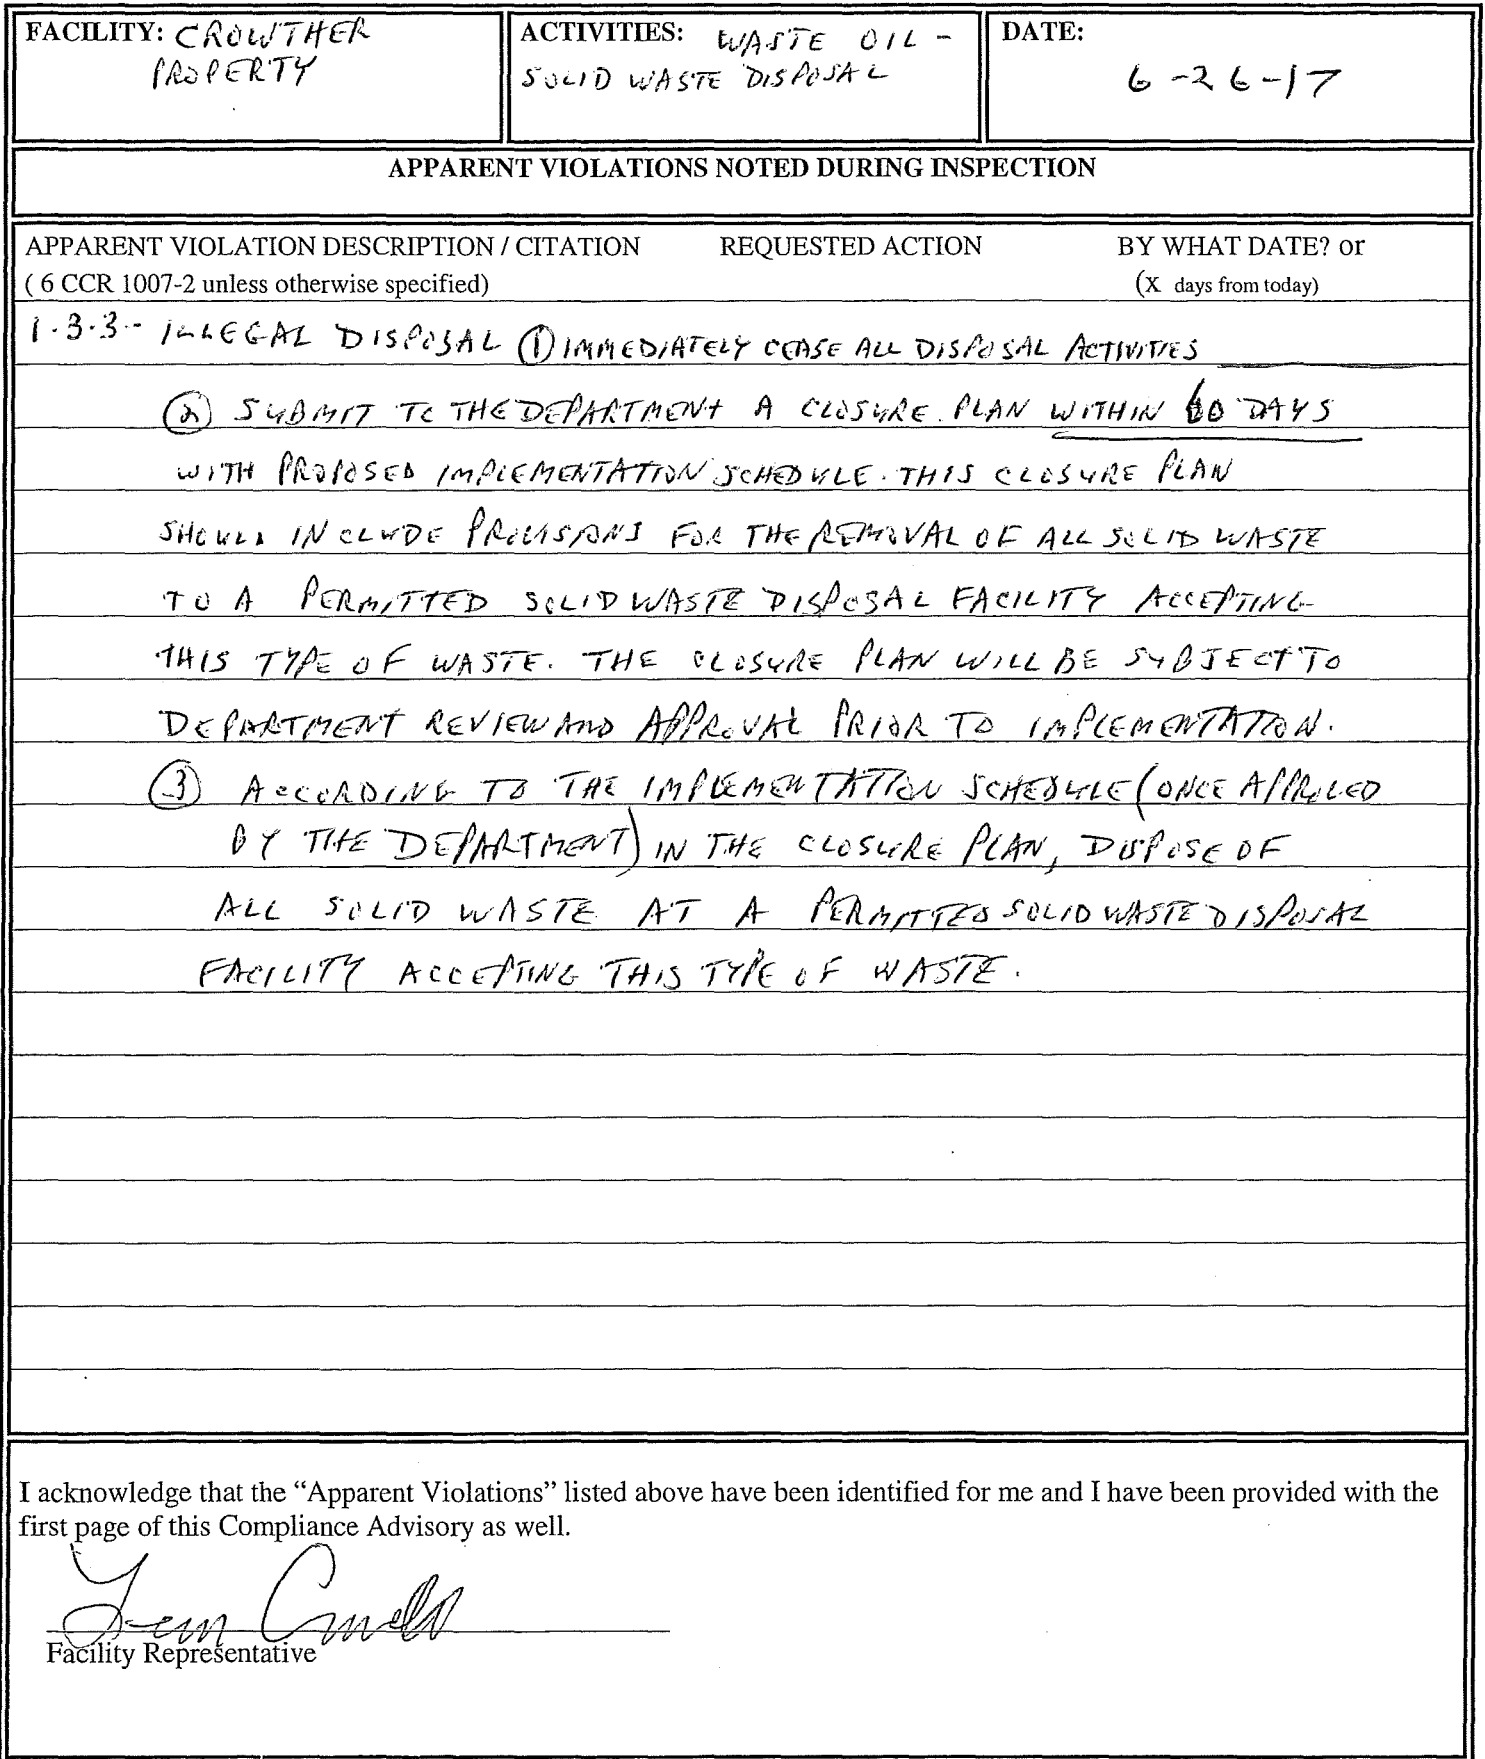 FACILITY: CROWTHER
PROPERTY
ACTIVITIES: WASTE OIL -
SOLID WASTE DISPOSAL
DATE:
6-26-17
APPARENT VIOLATIONS NOTED DURING INSPECTION
APPARENT VIOLATION DESCRIPTION / CITATION REQUESTED ACTION BY WHAT DATE? or
( 6 CCR 1007-2 unless otherwise specified) (X days from today)
1.3.3 - ILLEGAL DISPOSAL ① IMMEDIATELY CEASE ALL DISPOSAL ACTIVITIES
② SUBMIT TO THE DEPARTMENT A CLOSURE PLAN WITHIN 60 DAYS
WITH PROPOSED IMPLEMENTATION SCHEDULE. THIS CLOSURE PLAN
SHOULD INCLUDE PROVISIONS FOR THE REMOVAL OF ALL SOLID WASTE
TO A PERMITTED SOLID WASTE DISPOSAL FACILITY ACCEPTING
THIS TYPE OF WASTE. THE CLOSURE PLAN WILL BE SUBJECT TO
DEPARTMENT REVIEW AND APPROVAL PRIOR TO IMPLEMENTATION.
③ ACCORDING TO THE IMPLEMENTATION SCHEDULE (ONCE APPROVED
BY THE DEPARTMENT) IN THE CLOSURE PLAN, DISPOSE OF
ALL SOLID WASTE AT A PERMITTED SOLID WASTE DISPOSAL
FACILITY ACCEPTING THIS TYPE OF WASTE.
I acknowledge that the “Apparent Violations” listed above have been identified for me and I have been provided with the
first page of this Compliance Advisory as well.
Facility Representative